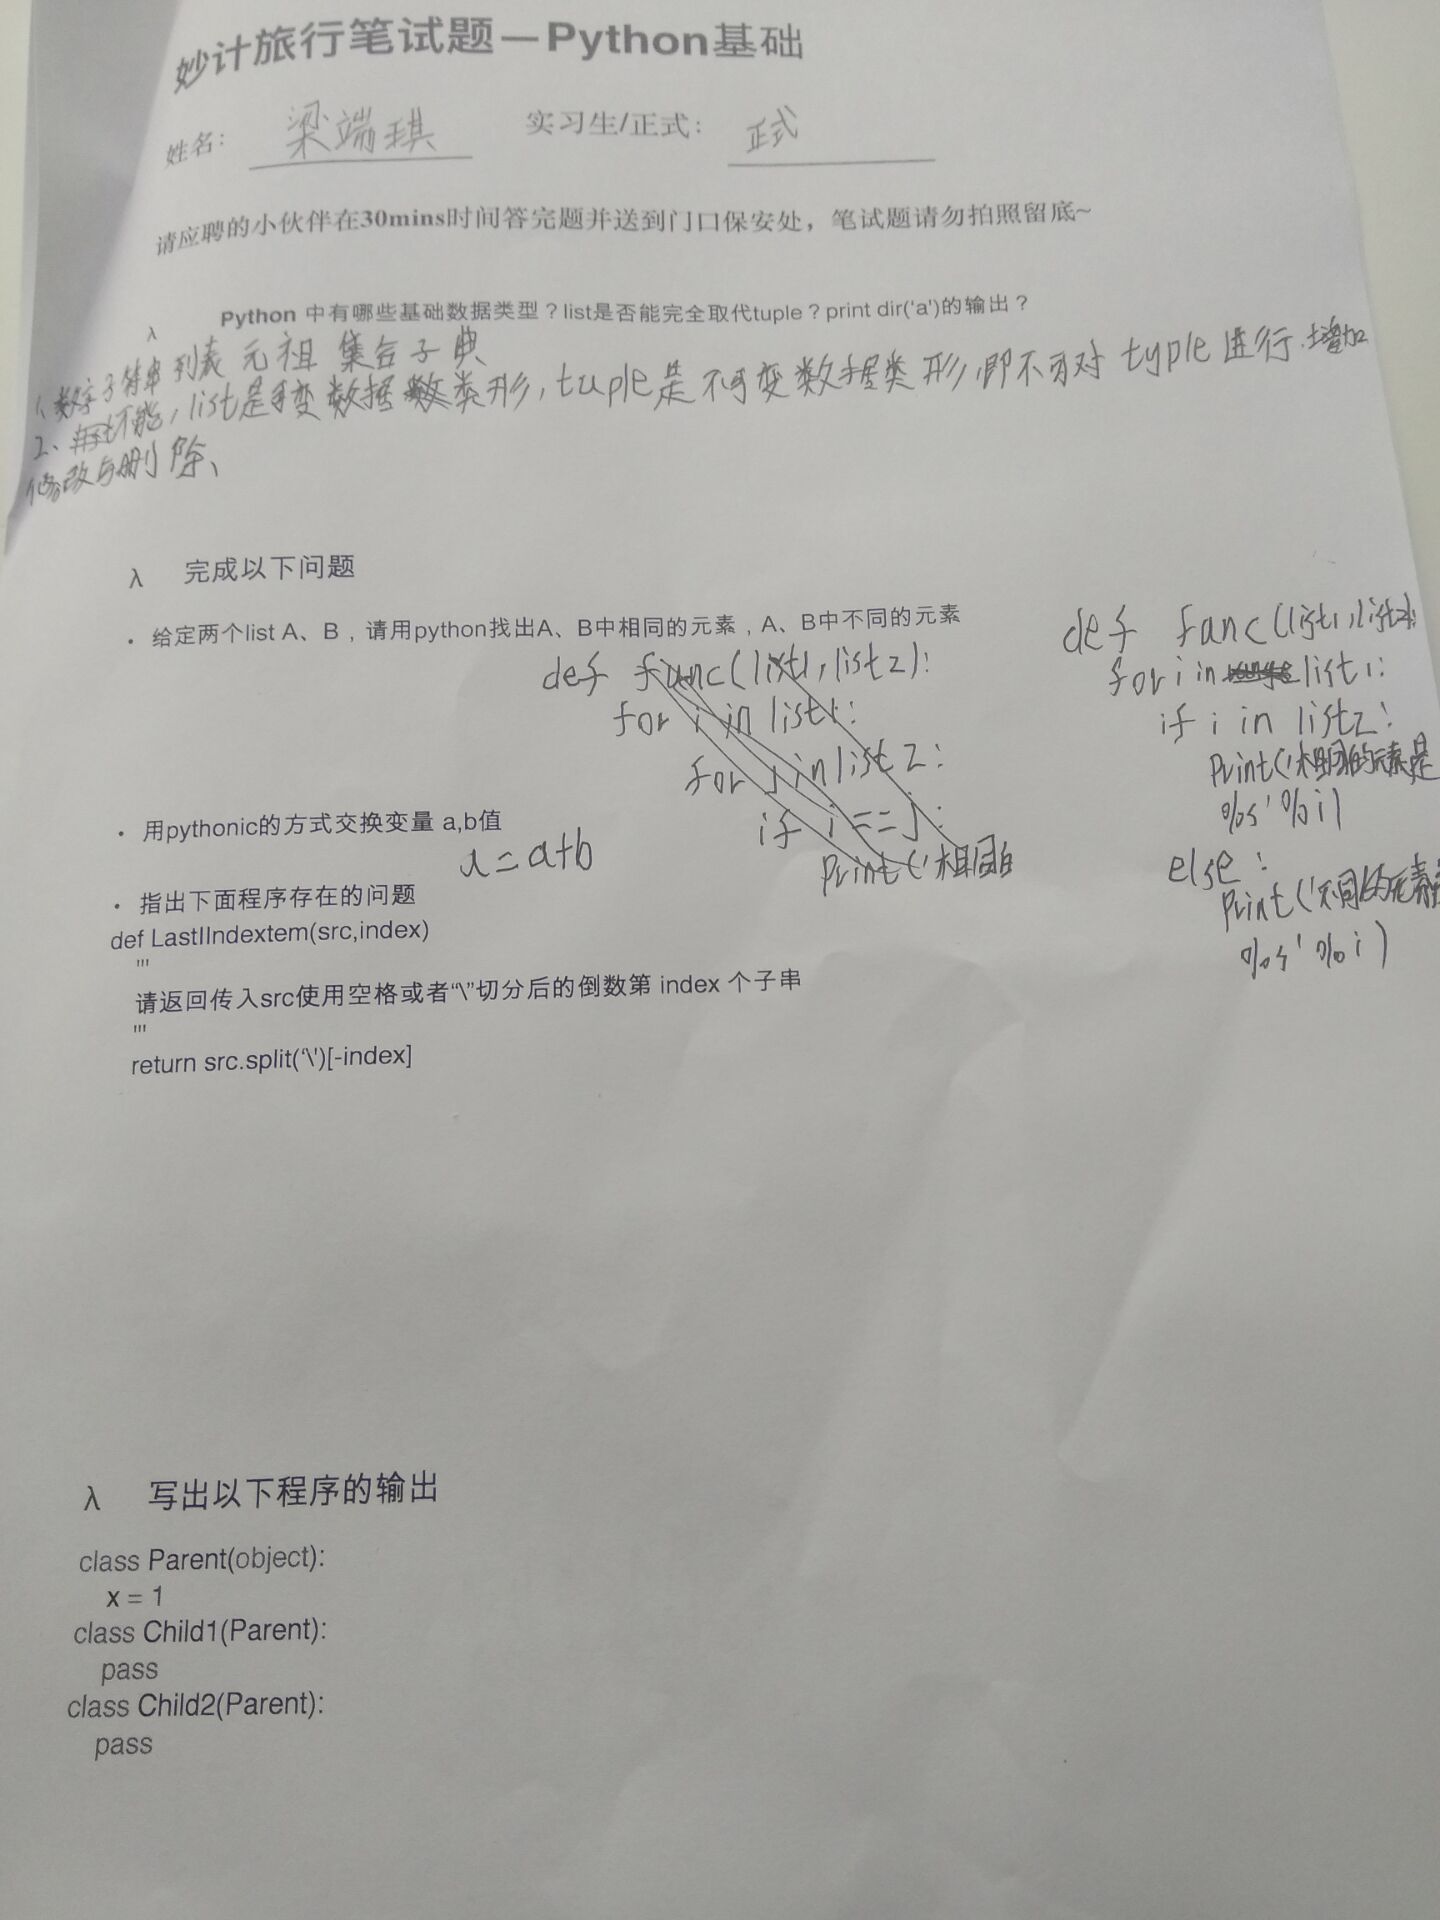 妙计旅行笔试题—Python基础
姓名： 梁端琪 实习生/正式： 正式
请应聘的小伙伴在30mins时间答完题并送到门口保安处，笔试题请勿拍照留底~
λ Python 中有哪些基础数据类型？list是否能完全取代tuple？print dir('a')的输出？
1、数字 字符串 列表 元祖 集合 字典
2、不能，list是可变数据类形，tuple是不可变数据类形，即不可对 typle 进行增加
修改与删除、
λ 完成以下问题
· 给定两个list A、B，请用python找出A、B中相同的元素，A、B中不同的元素
def func(list1,list2):
for i in list1:
for j in list2:
if i==j:
print('相同的
def func(list1,list2):
for i in list1:
if i in list2:
print('相同的元素是
%s' %i)
else:
print('不同的元素是
%s' %i)
· 用pythonic的方式交换变量 a,b值
a=a+b
· 指出下面程序存在的问题
def LastIIndextem(src,index)
'''
请返回传入src使用空格或者“\”切分后的倒数第 index 个子串
'''
return src.split('\')[-index]
λ 写出以下程序的输出
class Parent(object):
x = 1
class Child1(Parent):
pass
class Child2(Parent):
pass